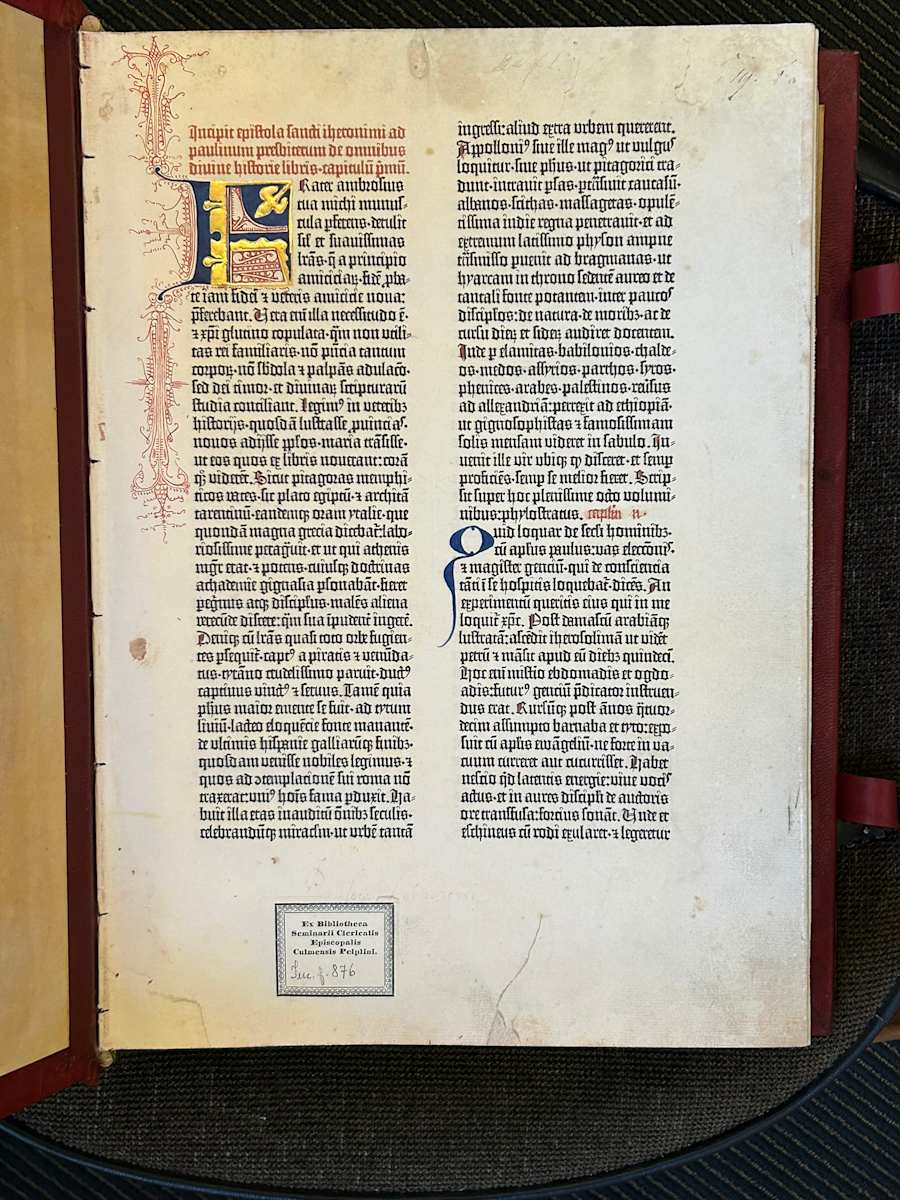 Incipit epistola sancti iheronimi ad
paulinum presbiterum de omnibus
divine historie libris·capitulū p̄mū.
Frater ambrosius
tua michi munus⸗
cula p̄ferens·detulit
sil̄ et suavissimas
lr̄as·q̄ a principio
amicicia𝔯ꝝ·fidē ꝓba⸗
te iam fidei ⁊ veteris amicicie noua:
p̄ferebant. Uera em̄ illa necessitudo ē·
⁊ xp̄i glutino copulata·qm̄ non vtili⸗
tas rei familiaris·nō p̄ncia tantum
corpoꝝ·nō sb̄dola ⁊ palpās adulaco̅·
sed dei timor·et diuinaꝝ scripturarū
studia conciliant. Legim⁹ in veteribꝫ
historijs·quosdā lustrasse ꝓuincias·
nouos adijsse pp̄los·maria trāsisse·
ut eos quos ex libris nouerant:corā
qꝫ viderēt. Sicut pitagoras memphi⸗
ticos vates·sic plato egiptū·⁊ architā
tarentinū·eandemqꝫ oram ytalie·que
quondā magna grecia dicebat̄:labo⸗
riosissime peragͣuit·et ut qui athenis
mgr̄ erat·⁊ potens·cuiusqꝫ doctrinas
achademie gignasia ꝑsonabāt·fieret
peg̊nus atqꝫ discipl̄us·malēs aliena
verecūde discere:qm̄ sua īpudent̄ ingeré.
Deniqꝫ cū lr̄as quasi toto orbe fugien⸗
tes ꝑsequit̄·capt⁹ a piratis ⁊ venūda⸗
tus·tyrāno crudelissimo paruit·duct⁹
captiuus vinct⁹ ⁊ seruus. Tamē quia
ph̄us maior emente se fuit·ad tytum
liuiū·lacteo eloquēcie fonte manantē·
de vltimis hispanie galliarūqꝫ finibꝫ·
quosdam venisse nobiles legimus·⁊
quos ad ꝯtemplacionē sui roma nō
traxerat:vni⁹ hoīs fama ꝑduxit. Ha⸗
buit illa etas inauditū om̄ibꝫ seculis·
celebrandūqꝫ miracl̄m·ut vrbē tantā
ingressi:aliud extra vrbem quererent.
Appolloni⁹ siue ille mag⁹ ut vulgus
loquitur·siue ph̄us·ut pitagorici tra⸗
dunt·intrauit ꝑsas·ꝑtrāsiuit caucasū·
albanos·scithas·massagetas·opulē⸗
tissima indie regna penetrauit·et ad
extremum latissimo physon ampne
trāsmisso ꝑuenit ad bragmanas·ut
hyarcam in throno sedentē aureo et de
tantali fonte potantem·inter paucos
discipl̄os:de natura·de moribꝫ·ac de
cursu dieꝝ et sideꝝ audiret docentem.
Inde ꝑ elamitas·babilonios·chalde⸗
os·medos·assyrios·parthos·syros·
phenices·arabes·palestinos·reūsus
ad allexandriā:perrexit ad ethiopiā·
ut gignosophistas ⁊ famosissimam
solis mensam videret in sabulo. In⸗
uenit ille vir vbiqꝫ qd̄ disceret·et semꝑ
proficiēs·semꝑ se melior fieret. Scrip⸗
sit super hoc plenissime octo volumi⸗
nibus:phylostratus. capl̄m ii·
Quid loquar de seculi hominibꝫ:
cū apl̄us paulus:vas eleccōnis·
⁊ magister genciū·qui de consciencia
tāti ī se hospitis loquebat̄·dicēs. An
experimentū queritis eius qui in me
loquit̄ xp̄c. Post damascū arabiāqꝫ
lustratā:ascēdit iherosolimā ut vidēt
petrū ⁊ māsit apud eū diebꝫ quindecī.
Hoc em̄ misterio ebdomadis et ogdo⸗
adis:futur⁹ genciū p̄dicator instruen⸗
dus erat. Rursūqꝫ post ānos q̄tuor⸗
decim assumpto barnaba et tyto:expo⸗
suit cū apl̄is ewāgeliū·ne forte in va⸗
cuum curreret aut cucurrisset. Habet
nescio qd̄ latentis energie:viue vocis
actus·et in aures discipl̄i de auctoris
ore transfusa:forcius sonāt. Unde et
eschineus cū rodi exularet·⁊ legeretur
Ex Bibliotheca
Seminarii Clericalis
Episcopalis
Culmensis Pelplini.
Inc. f. 876